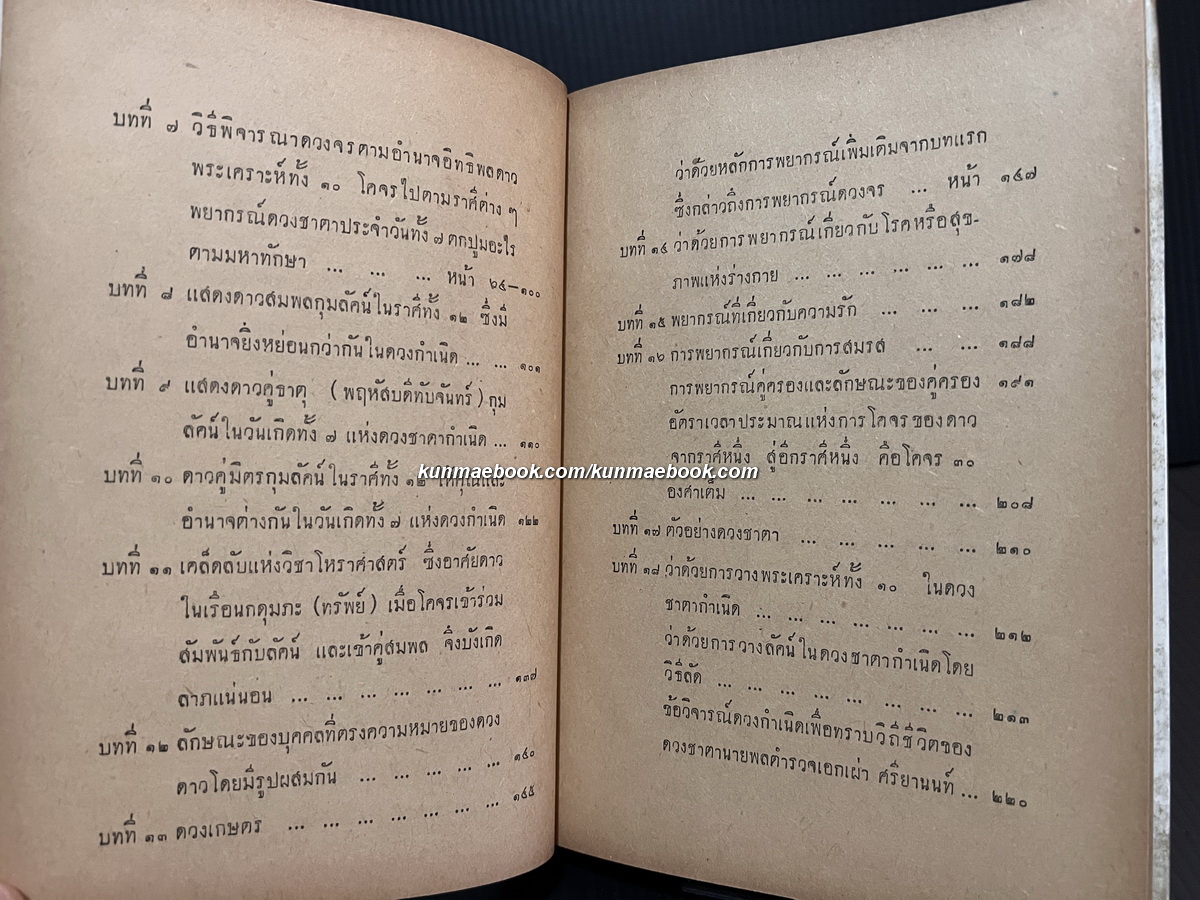 บทที่ ๗ วิธีพิจารณาดวงจรตามอำนาจอิทธิพลดาว
พระเคราะห์ทั้ง ๑๐ โคจรไปตามราศีต่าง ๆ
พยากรณ์ดวงชาตาประจำวันทั้ง ๗ ตกปูมอะไร
ตามมหาทักษา ... ... ... หน้า ๖๔—๑๐๐
บทที่ ๘ แสดงดาวสมพลกุมลัคน์ในราศีทั้ง ๑๒ ซึ่งมี
อำนาจยิ่งหย่อนกว่ากันในดวงกำเนิด ... ... ๑๐๑
บทที่ ๙ แสดงดาวคู่ธาตุ (พฤหัสบดีทับจันทร์) กุม
ลัคน์ในวันเกิดทั้ง ๗ แห่งดวงชาตากำเนิด ... ๑๑๐
บทที่ ๑๐ ดาวคู่มิตรกุมลัคน์ในราศีทั้ง ๑๒ ให้คุณและ
อำนาจต่างกันในวันเกิดทั้ง ๗ แห่งดวงกำเนิด ๑๒๒
บทที่ ๑๑ เคล็ดลับแห่งวิชาโหราศาสตร์ ซึ่งอาศัยดาว
ในเรือนกดุมภะ (ทรัพย์) เมื่อโคจรเข้าร่วม
สัมพันธ์กับลัคน์ และเข้าคู่สมพล จึงบังเกิด
ลาภแน่นอน ... ... ... ... ... ... ... ๑๓๗
บทที่ ๑๒ ลักษณะของบุคคลที่ตรงความหมายของดวง
ดาวโดยมีรูปผสมกัน ... ... ... ... ... ๑๔๐
บทที่ ๑๓ ดวงเกษตร ... ... ... ... ... ... ... ๑๔๕
ว่าด้วยหลักการพยากรณ์เพิ่มเติมจากบทแรก
ซึ่งกล่าวถึงการพยากรณ์ดวงจร ... หน้า ๑๔๗
บทที่ ๑๔ ว่าด้วยการพยากรณ์เกี่ยวกับโรคหรือสุข-
ภาพแห่งร่างกาย ... ... ... ... ... ... ๑๗๘
บทที่ ๑๕ พยากรณ์ที่เกี่ยวกับความรัก ... ... ... ๑๘๒
บทที่ ๑๖ การพยากรณ์เกี่ยวกับการสมรส ... ... ๑๘๘
การพยากรณ์คู่ครองและลักษณะของคู่ครอง ๑๙๑
อัตราเวลาประมาณแห่งการโคจรของดาว
จากราศีหนึ่ง สู่อีกราศีหนึ่ง คือโคจร ๓๐
องศาเต็ม ... ... ... ... ... ... ... ๒๐๘
บทที่ ๑๗ ตัวอย่างดวงชาตา ... ... ... ... ... ๒๑๐
บทที่ ๑๘ ว่าด้วยการวางพระเคราะห์ทั้ง ๑๐ ในดวง
ชาตากำเนิด ... ... ... ... ... ... ... ๒๑๒
ว่าด้วยการวางลัคน์ในดวงชาตากำเนิดโดย
วิธีลัด ... ... ... ... ... ... ... ... ๒๑๓
ข้อวิจารณ์ดวงกำเนิดเพื่อทราบวิถีชีวิตของ
ดวงชาตานายพลตำรวจเอกเผ่า ศรียานนท์ ... ๒๒๐
kunmaebook.com/kunmaebook.com